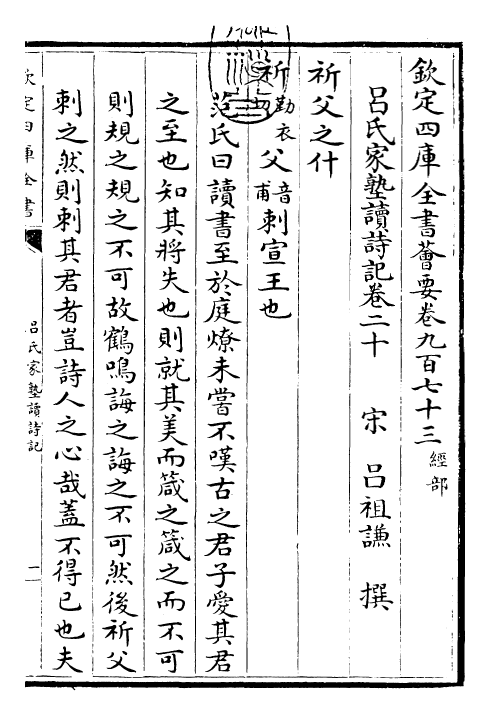 欽定四庫全書薈要卷九百七十三 經部
呂氏家塾讀詩記卷二十 宋 呂祖謙 撰
祈父之什
祈勤衣父音甫刺宣王也
范氏曰讀書至於庭燎未嘗不嘆古之君子愛其君
之至也知其將失也則就其美而箴之箴之而不可
則規之規之不可故鶴鳴誨之誨之不可然後祈父
刺之然則刺其君者豈詩人之心哉蓋不得已也夫
欽定四庫全書
呂氏家塾讀詩記
一